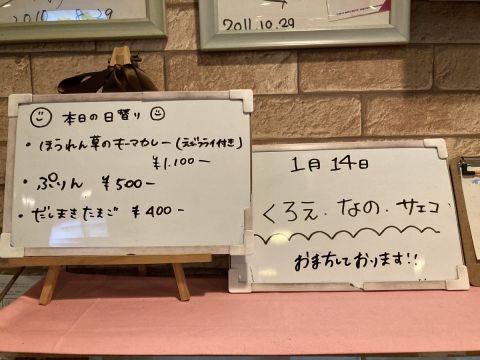 2011.10.29
本日の日替り
・ほうれん草のキーマカレー(えびフライ付き)
¥1.100-
・ぷりん ¥500-
・だしまきたまご ¥400-
1月14日
くろえ.なの.サエコ.
おまちしております!!